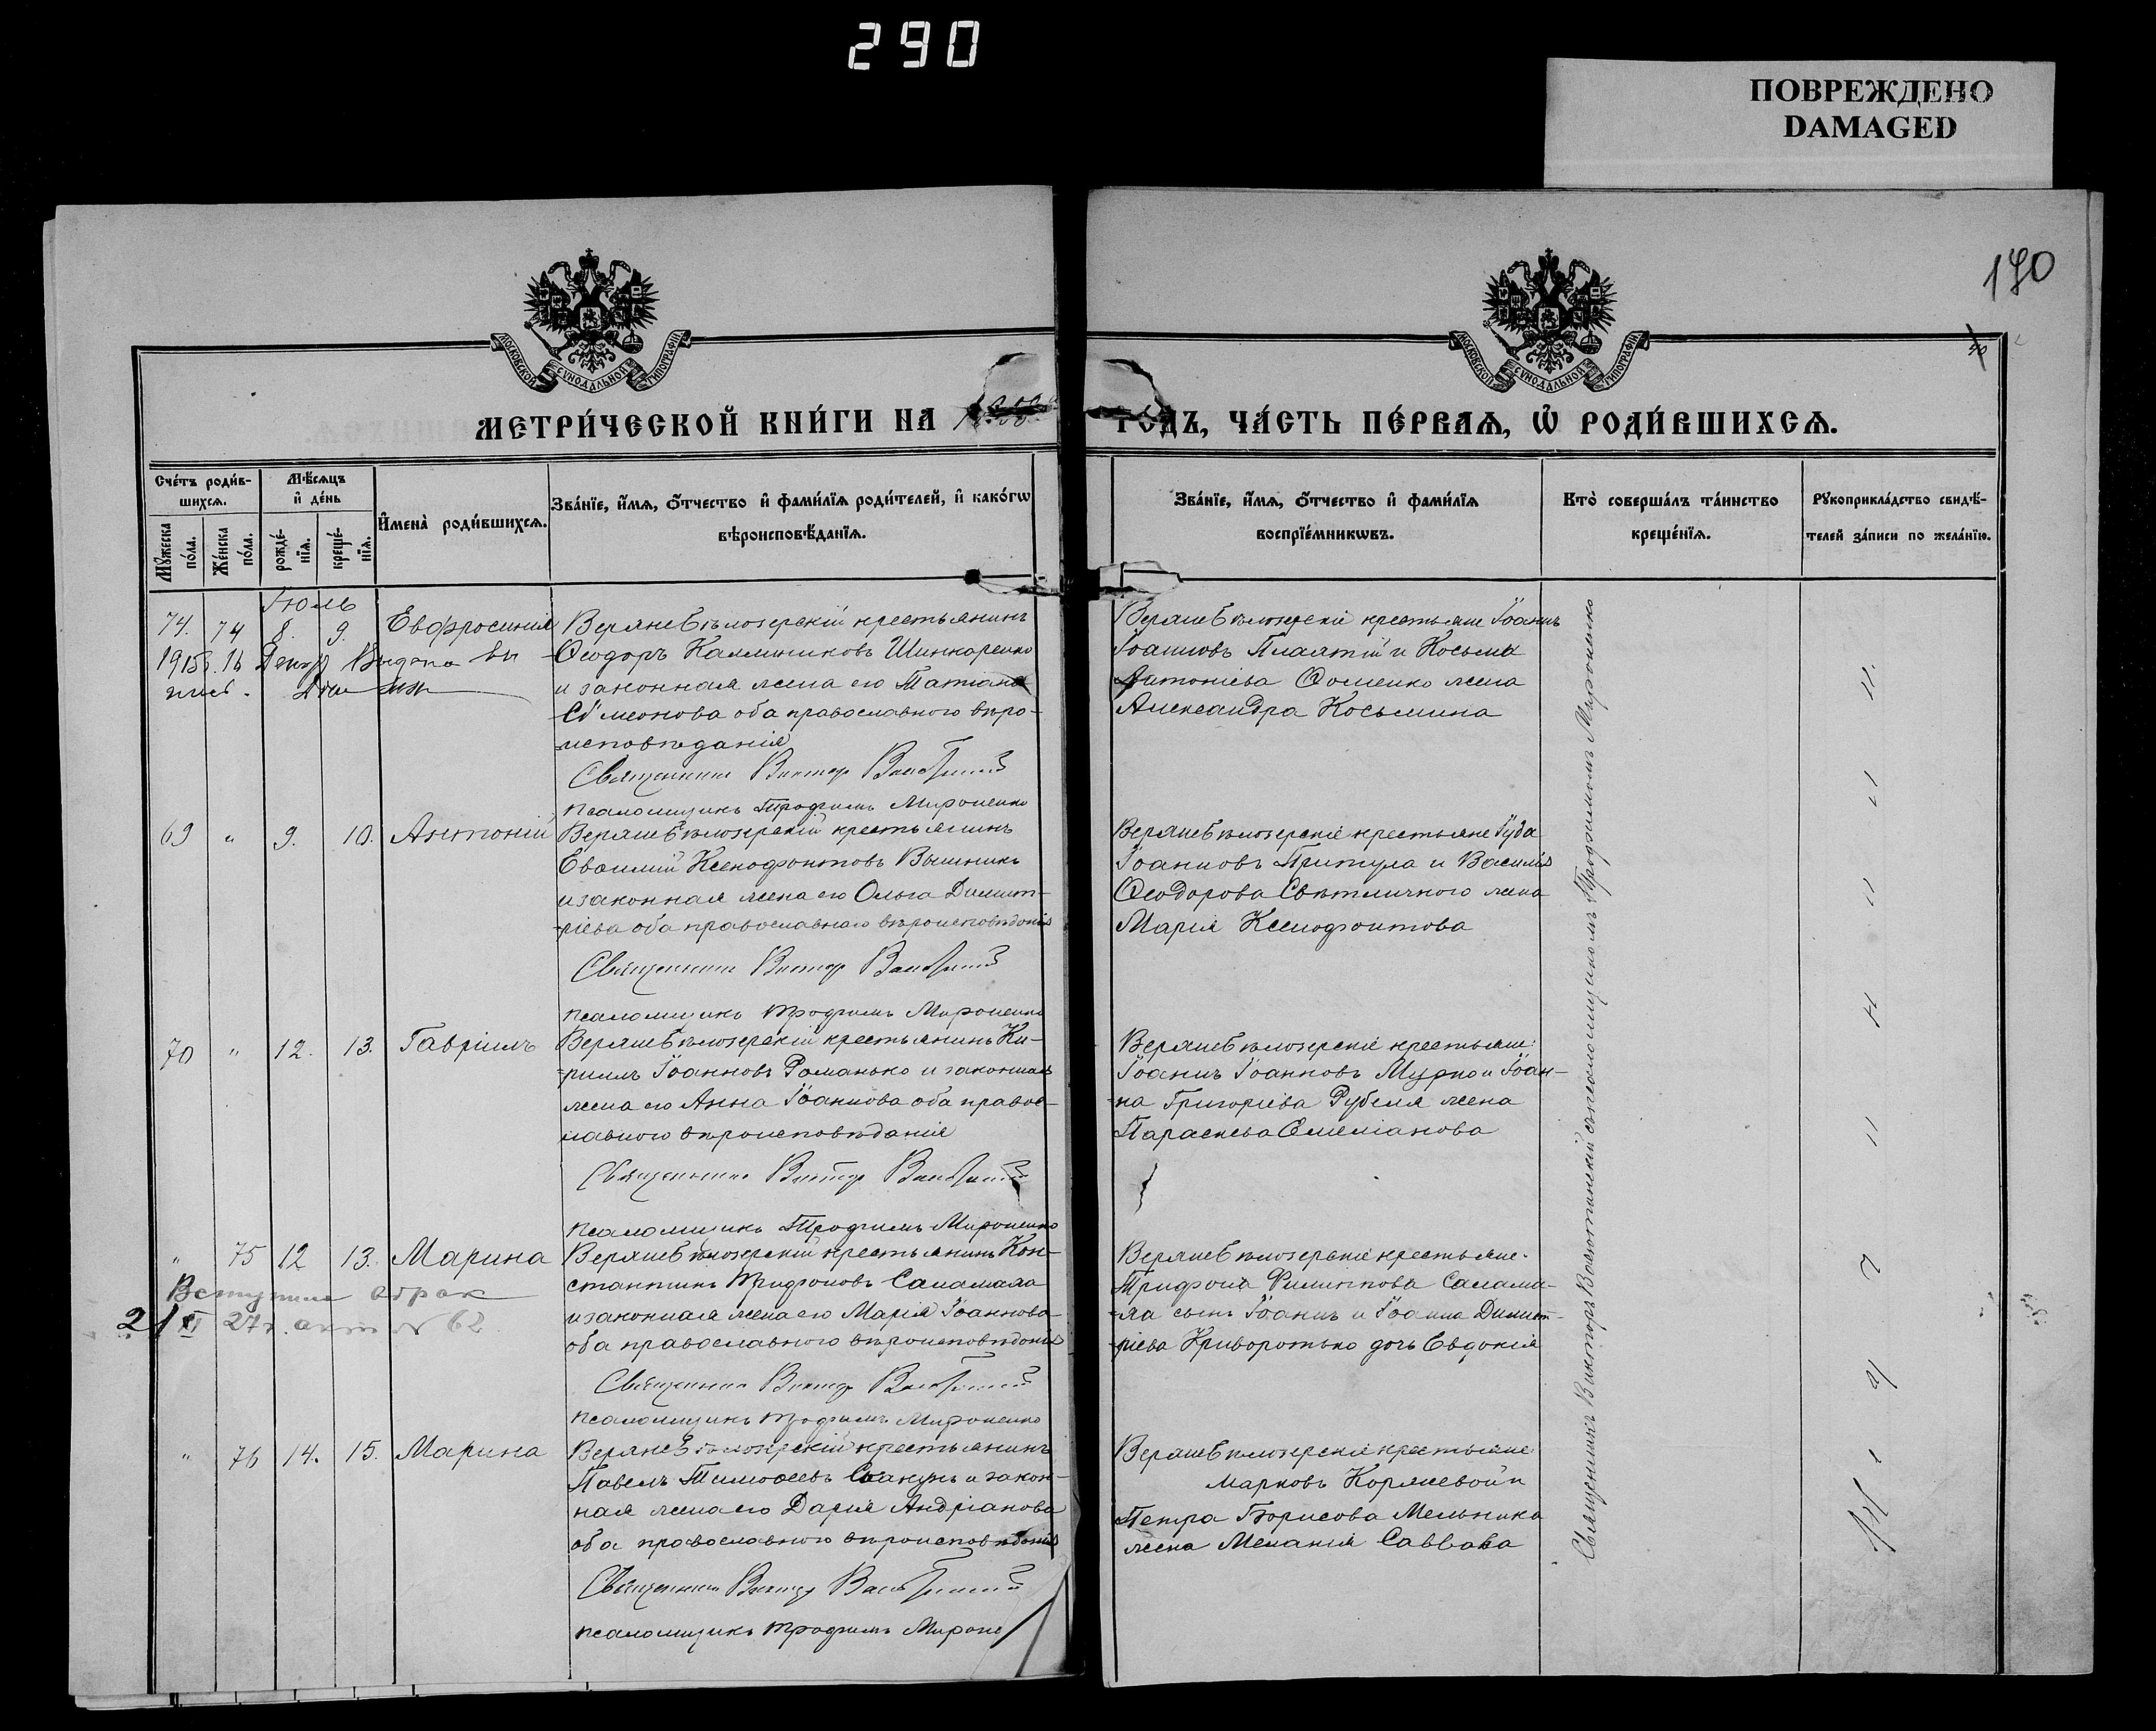 290
ПОВРЕЖДЕНО
DAMAGED
170
МОСКОВСКОЙ СѴНОДАЛЬНОЙ ТИПОГРАФІИ.
МОСКОВСКОЙ СѴНОДАЛЬНОЙ ТИПОГРАФІИ.
МЕТРИ́ЧЕСКОЙ КНИ́ГИ НА
ГО́ДЪ, ЧА́СТЬ ПЕ́РВАѦ, Ѡ҆ РОДИ́ВШИХСѦ.
Сче́тъ роди́в-
шихсѧ.
Мꙋ́жеска
по́ла.
Же́нска
по́ла.
Мѣ́сѧцъ
и҆ де́нь
рожде́-
нїѧ.
креще́-
нїѧ.
И҆мена̀ роди́вшихсѧ.
Зва́нїе, и҆́мѧ, ѻ҆́тчество и҆ фами́лїѧ роди́телей, и҆ како́гѡ
вѣроисповѣ́данїѧ.
Зва́нїе, и҆́мѧ, ѻ҆́тчество и҆ фами́лїѧ
воспрїе́мникѡвъ.
Кто̀ соверша́лъ та́инство
креще́нїѧ.
Рꙋкоприкла́дство свидѣ́-
телей за́писи по жела́нїю.
Іюль
74. 74 8. 9. Евфросинія
Верхнебѣлозерскій крестьянинъ
Ѳеодоръ Каллиниковъ Шинкаренко
и законная жена его Татіана
Сѵмеонова оба православнаго вѣро-
исповѣданія
Священникъ Викторъ
псаломщикъ Трофимъ Мироненко
Верхнебѣлозерскіе крестьяне Іоаннъ
Іоанновъ Платтій и Косьмы
Антоніева Ѳоменко жена
Александра Косьмина
69 " 9. 10. Антоній
Верхнебѣлозерскій крестьянинъ
Евѳимій Ксенофонтовъ Вышникъ
и законная жена его Ольга Димит-
ріева оба православнаго вѣроисповѣданія
Священникъ Викторъ
псаломщикъ Трофимъ Мироненко
Верхнебѣлозерскіе крестьяне Іуда
Іоанновъ Притула и Василія
Ѳеодорова Свѣтличного жена
Марія Ксенофонтова
70 " 12. 13. Гавріилъ
Верхнебѣлозерскій крестьянинъ Ки-
риллъ Іоанновъ Романько и законная
жена его Анна Іоаннова оба правос-
лавнаго вѣроисповѣданія
Священникъ Викторъ
псаломщикъ Трофимъ Мироненко
Верхнебѣлозерскіе крестьяне:
Іоаннъ Іоанновъ Мурко и Іоан-
на Григоріева Рубеля жена
Параскева Емеліанова
" 75 12 13. Марина
Вступила в брак
21 XI 27 г. акт № 62
Верхнебѣлозерскій крестьянинъ Кон-
стантинъ Трифоновъ Саламаха
и законная жена его Марія Іоаннова
оба православнаго вѣроисповѣданія
Священникъ Викторъ
псаломщикъ Трофимъ Мироненко
Верхнебѣлозерскіе крестьяне:
Трифона Филиппова Салама-
ха сынъ Іоаннъ и Іоанна Димит-
ріева Криворотько дочь Евдокія
" 76 14. 15. Марина
Верхнебѣлозерскій крестьянинъ
Павелъ Тимоѳеевъ и закон-
ная жена его Дарія Андріанова
оба православнаго вѣроисповѣданія
Священникъ Викторъ
псаломщикъ Трофимъ Мироне
Верхнебѣлозерскіе крестьяне:
Марковъ Коржевой и
Петра Борисова Мельника
жена Меланія Саввова
Священникъ Викторъ съ псаломщикомъ Трофимомъ Мироненко